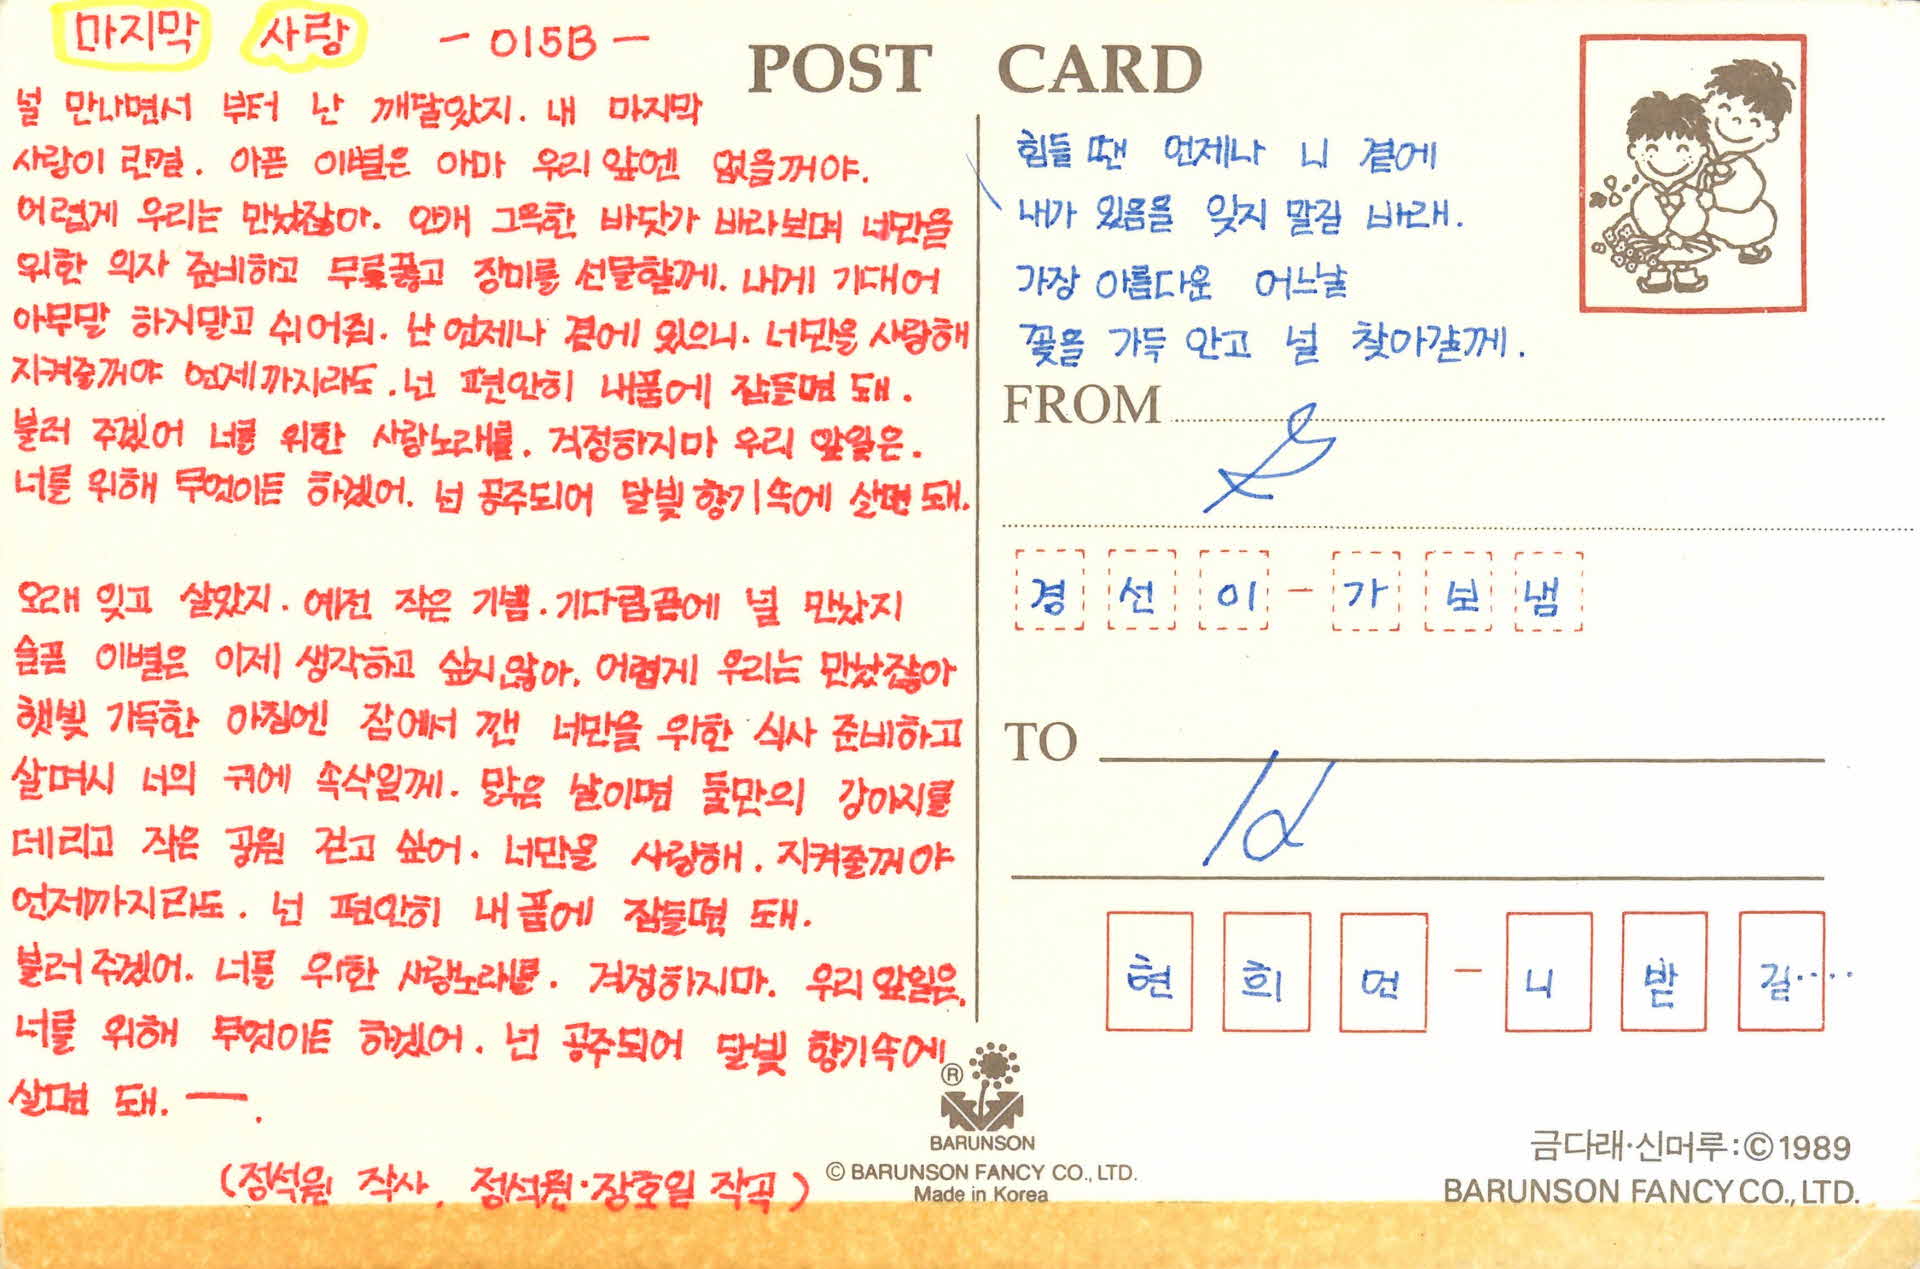 마지막 사랑 - 015B -
널 만나면서 부터 난 깨달았지. 내 마지막
사랑이 란걸. 아픈 이별은 아마 우리 앞엔 없을꺼야.
어렵게 우리는 만났잖아. 안개 그윽한 바닷가 바라보며 너만을
위한 의자 준비하고 무릎꿇고 장미를 선물할께. 내게 기대어
아무말 하지말고 쉬어줘. 난 언제나 곁에 있으니. 너만을 사랑해
지켜줄꺼야 언제까지라도. 넌 편안히 내품에 잠들면 돼.
불러 주겠어 너를 위한 사랑노래를. 걱정하지마 우리 앞일은.
너를 위해 무엇이든 하겠어. 넌 공주되어 달빛 향기속에 살면 돼.
오래 잊고 살았지. 예전 작은 기쁨. 기다림끝에 널 만났지
슬픈 이별은 이제 생각하고 싶지 않아. 어렵게 우리는 만났잖아
햇빛 가득한 아침엔 잠에서 깬 너만을 위한 식사 준비하고
살며시 너의 귀에 속삭일께. 맑은 날이면 둘만의 강아지를
데리고 작은 공원 걷고 싶어. 너만을 사랑해. 지켜줄꺼야
언제까지라도. 넌 편안히 내 품에 잠들면 돼.
불러 주겠어. 너를 위한 사랑노래를. 걱정하지마. 우리 앞일은.
너를 위해 무엇이든 하겠어. 넌 공주되어 달빛 향기속에
살면 돼. ㅡ.
(정석원 작사, 정석원·장호일 작곡)
POST CARD
힘들 땐 언제나 니 곁에
내가 있음을 잊지 말길 바래.
가장 아름다운 어느날
꽃을 가득 안고 널 찾아갈께.
FROM
경선이-가보냄
TO
현희언-니받길····
®
BARUNSON
© BARUNSON FANCY CO., LTD.
Made in Korea
금다래·신머루:©1989
BARUNSON FANCY CO., LTD.